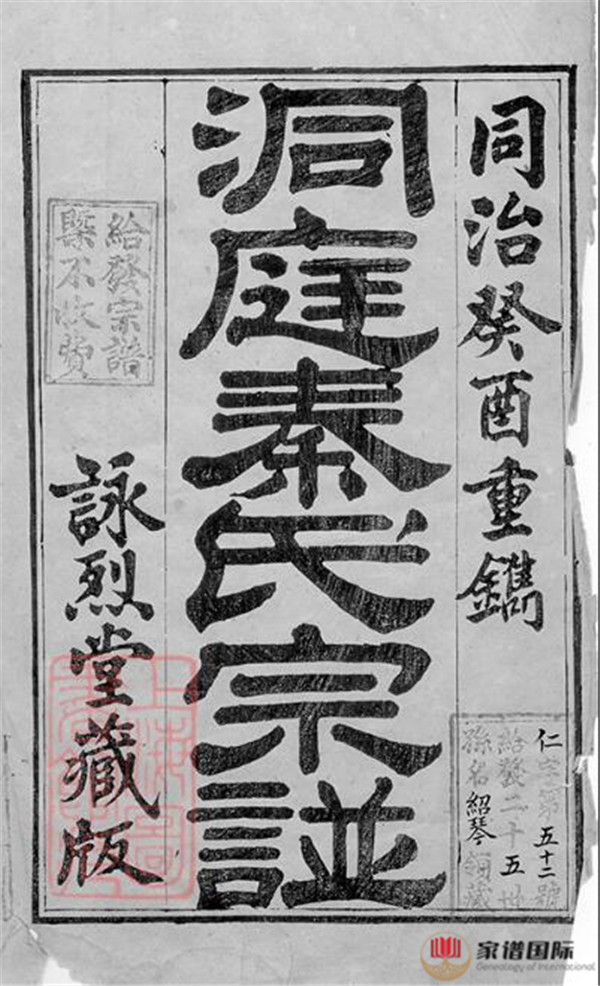 同治癸酉重鐫
洞庭秦氏宗譜
給發宗譜
槩不收費
詠烈堂藏版
仁字第五十二號
給發二十五世
孫名紹琴領藏
家谱国际
Genealogy of International